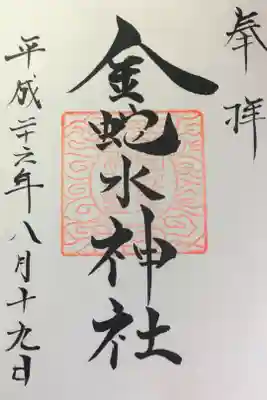 奉拝
金蛇水神社
平成二十六年八月十九日